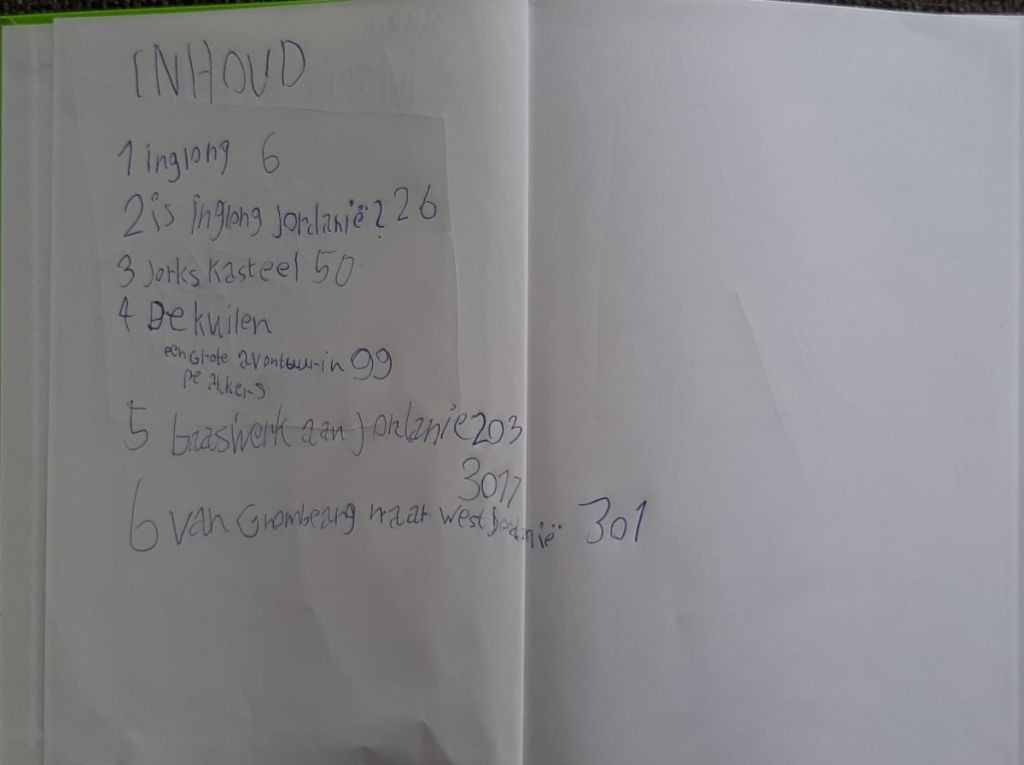 INHOUD
1 inglong 6
2 is inglong jordanië? 26
3 Jorks kasteel 50
4 De kuilen
een grote avontuur in 99
De Akkers
5 baaswerk aan jordanie 203
301
6 van Grombeang naar west 301